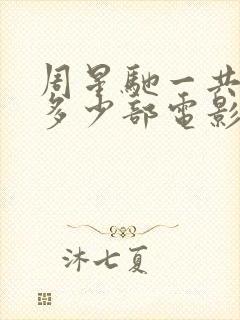 周星馳一共
多少部電影
沐七夏